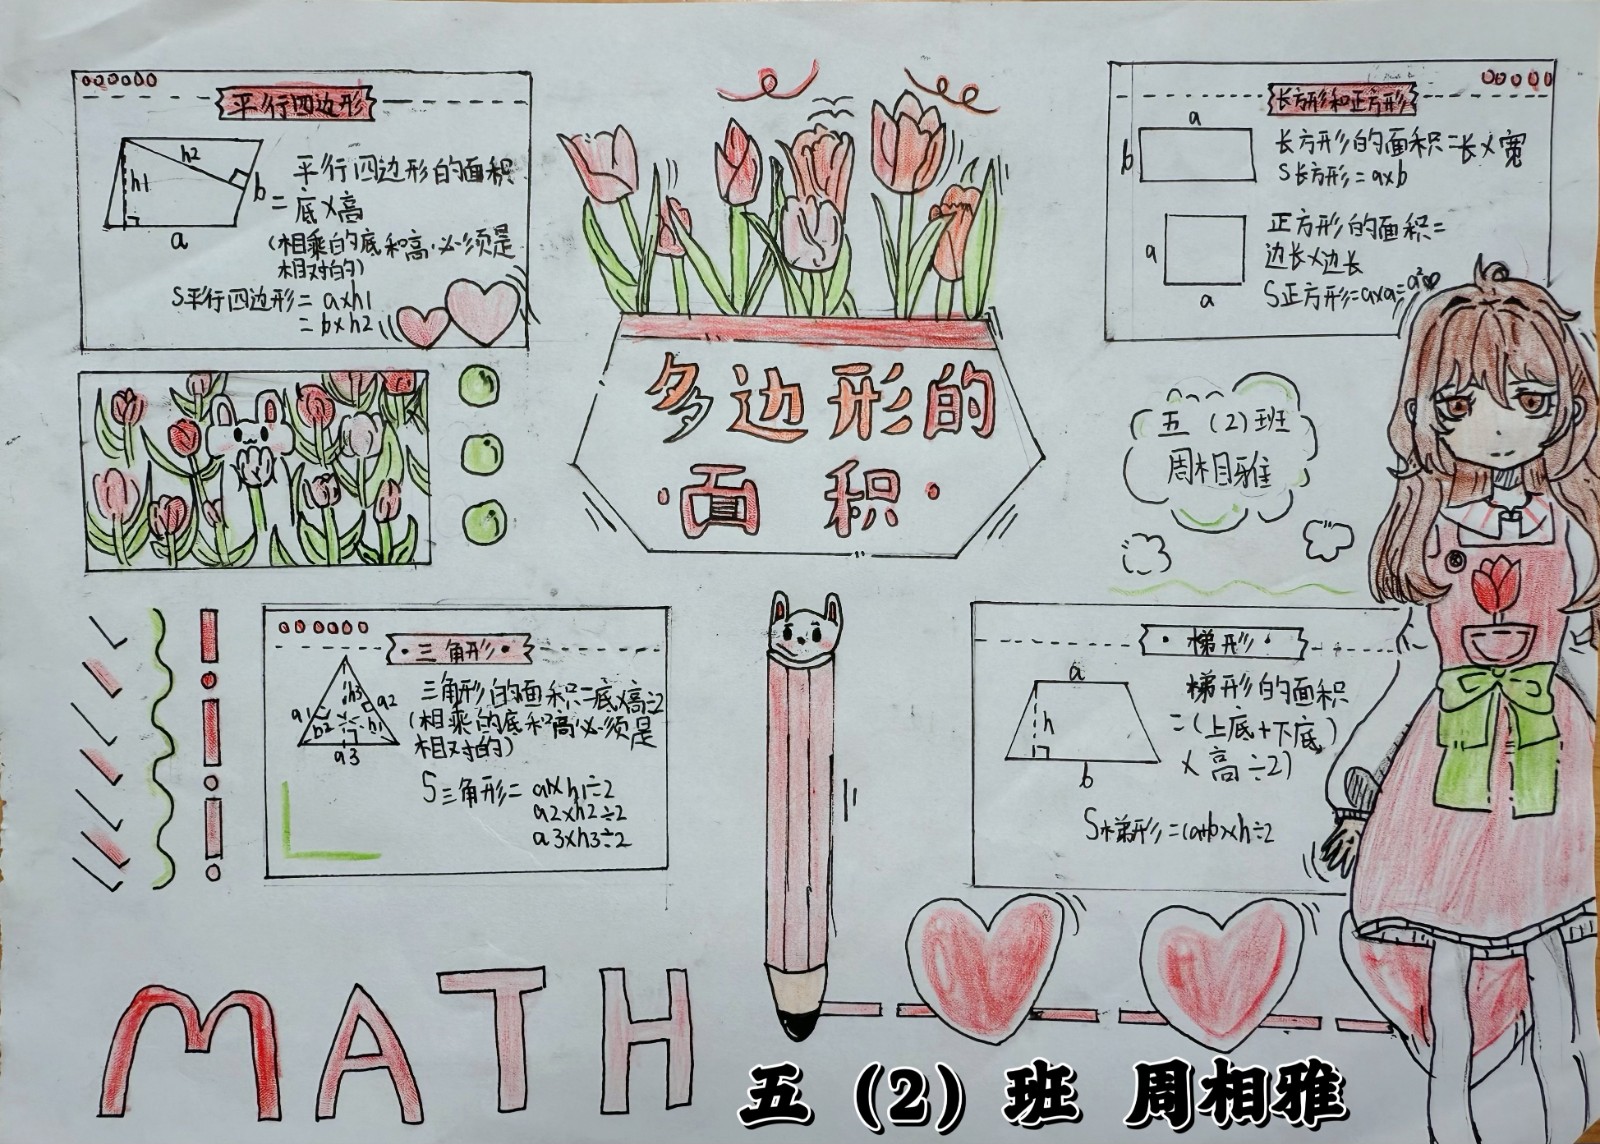 平行四边形
h2
h1
b
a
平行四边形的面积
=底×高
(相乘的底和高必须是
相对的)
S平行四边形=a×h1
=b×h2
多边形的
面积
长方形和正方形
a
b
长方形的面积=长×宽
S长方形=a×b
a
a
正方形的面积=
边长×边长
S正方形=a×a=a²
五(2)班
周相雅
三角形
a1
h3
a2
h2
h1
a3
三角形的面积=底×高÷2
(相乘的底和高必须是
相对的)
S三角形=a1×h1÷2
a2×h2÷2
a3×h3÷2
梯形
a
h
b
梯形的面积
=(上底+下底)
×高÷2)
S梯形=(a+b)×h÷2
MATH
五(2)班 周相雅